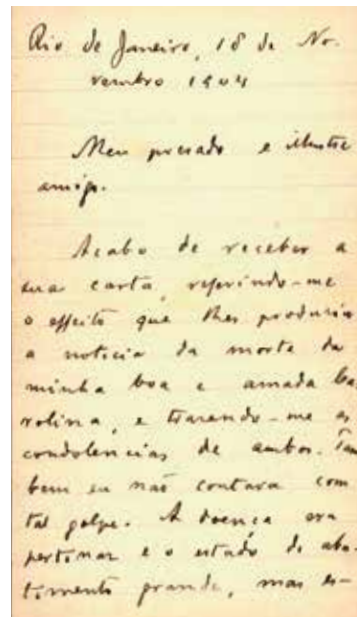 Rio de Janeiro, 18 de No-
vembro 1904
Meu presado e illustre
amigo.
Acabo de receber a
sua carta, referindo-me
o effeito que lhes produziu
a noticia da morte da
minha boa e amada Ca-
rolina, e trazendo-me as
condolencias de ambos. Tam
bem eu não contava com
tal golpe. A doença era
pertinaz e o estado de aba-
timento grande, mas es-